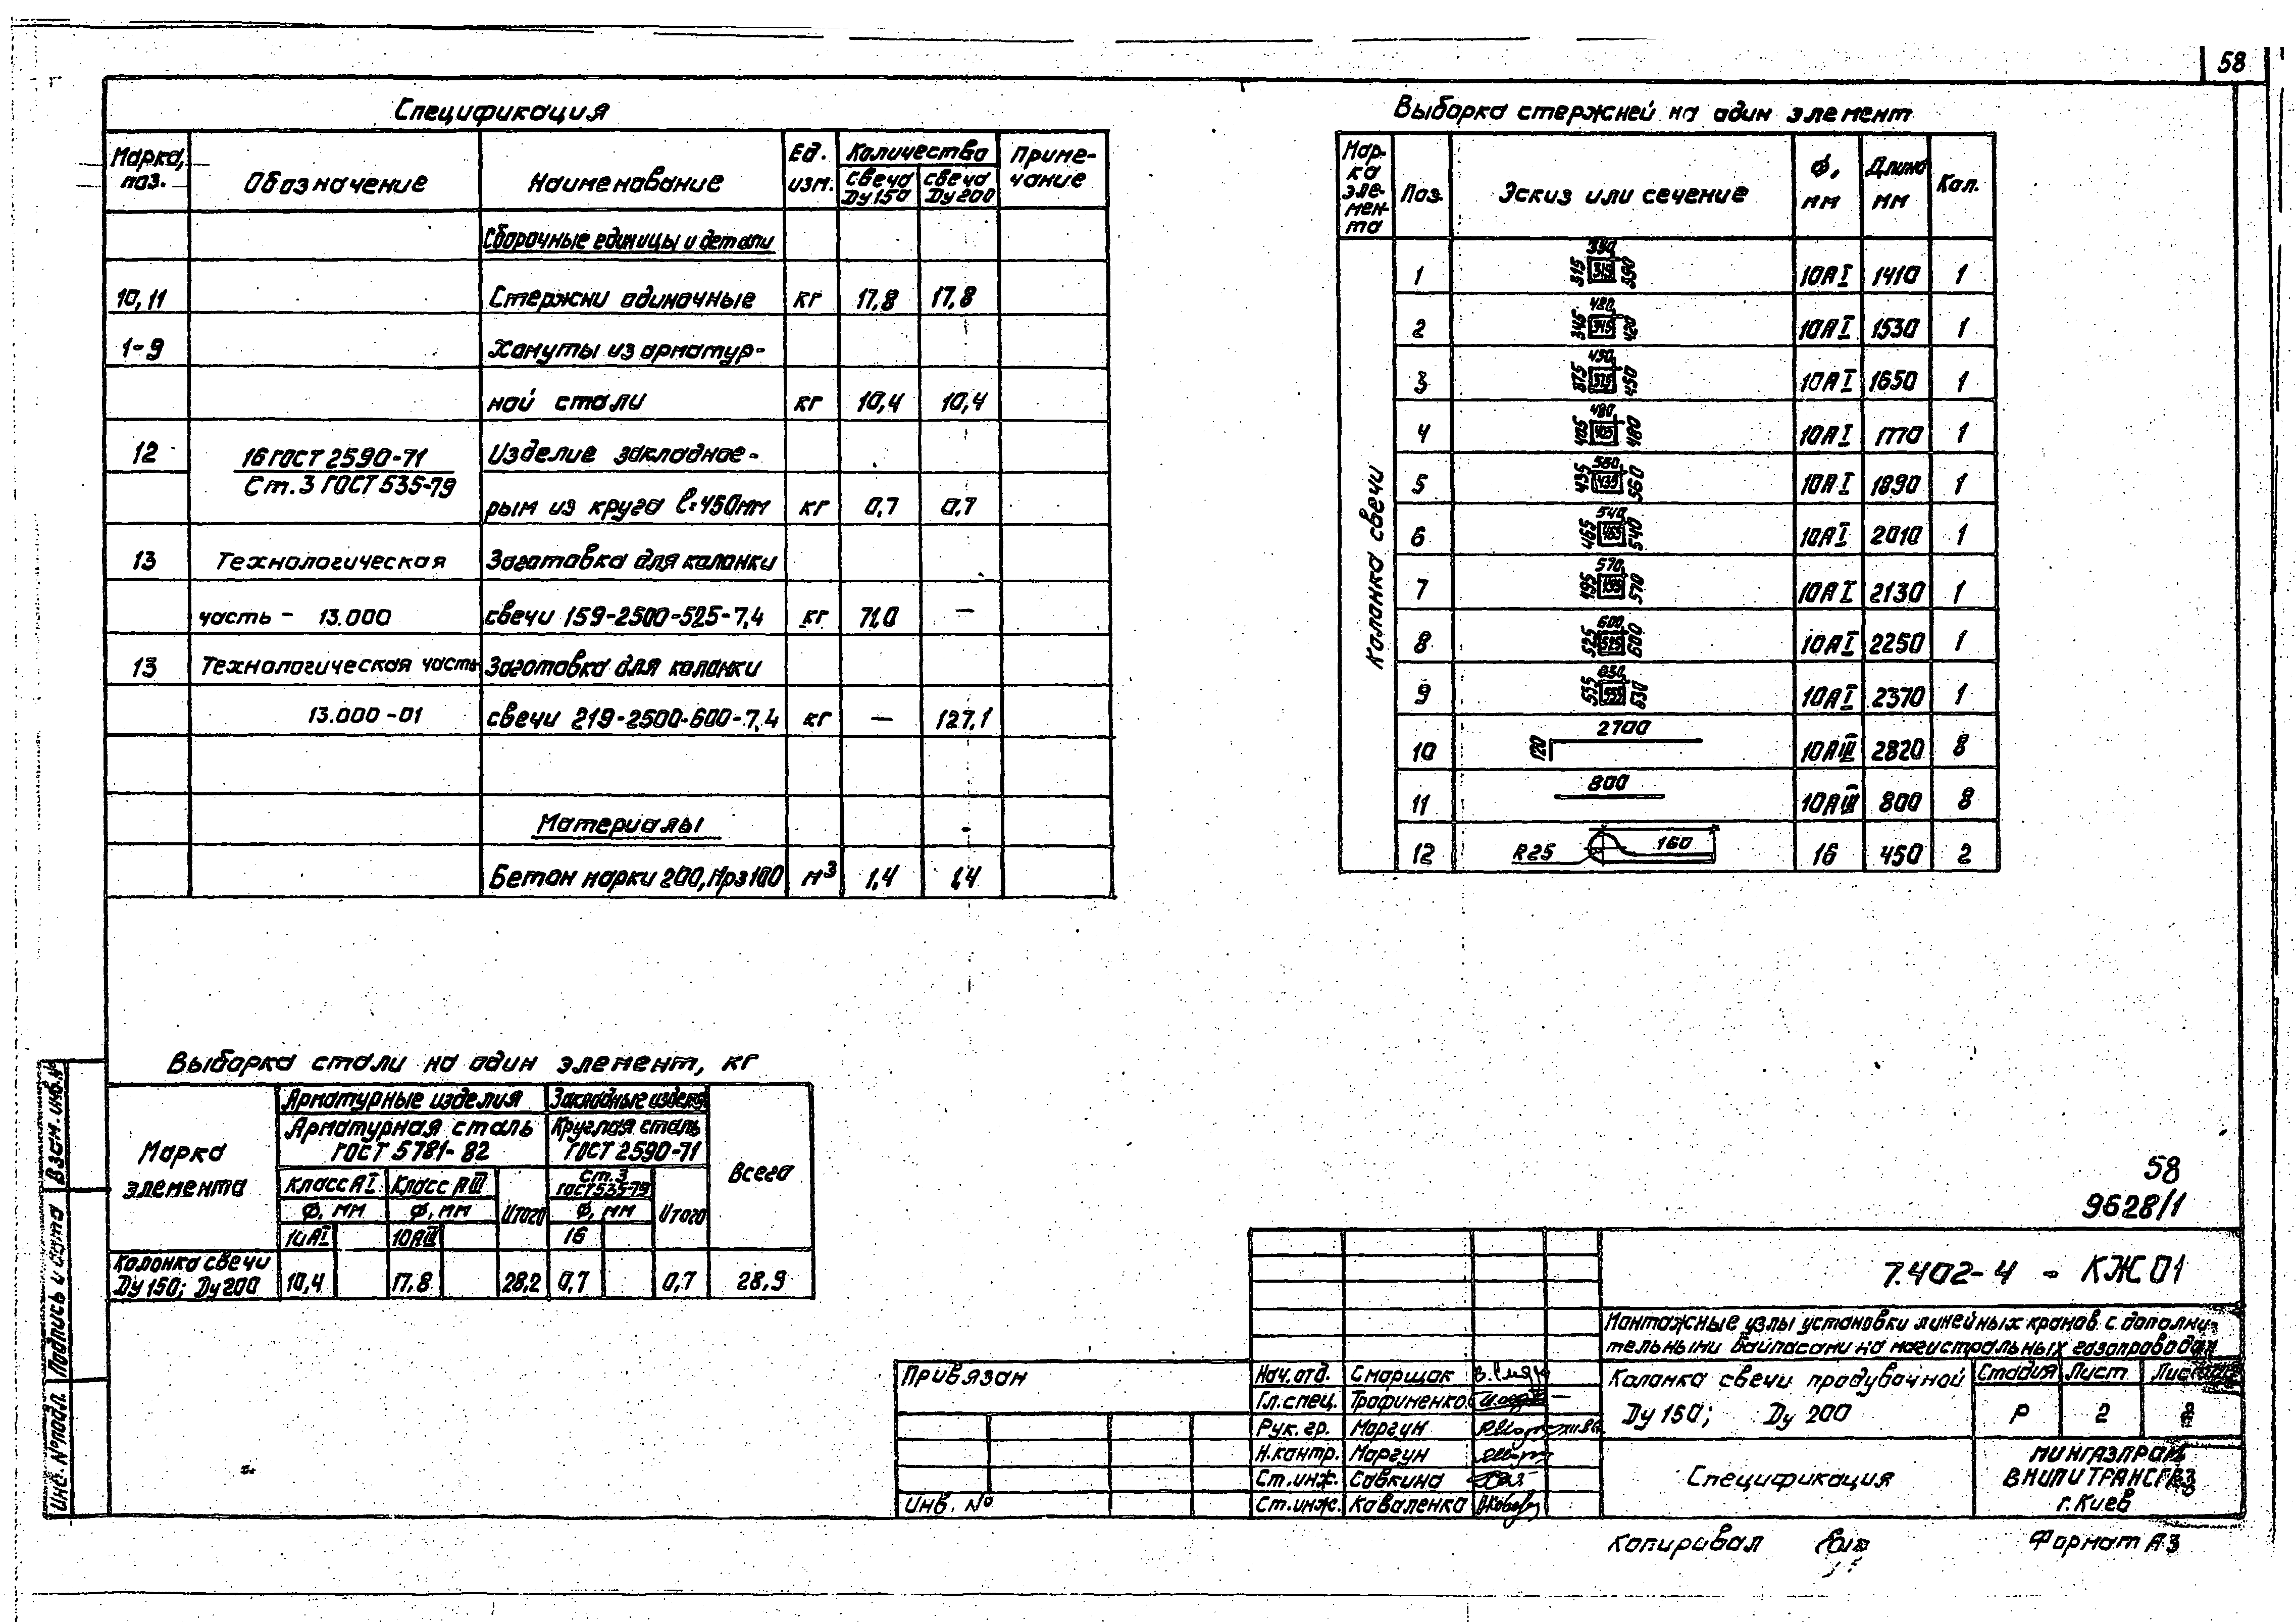 58
Спецификация
Марка, поз.
Обозначение
Наименование
Ед. изм.
Количество
свеча Ду 150
свеча Ду 200
Примечание
Сборочные единицы и детали
10, 11 Стержни одиночные кг 17,8 17,8
1-9 Хомуты из арматур-
ной стали кг 10,4 10,4
12 16 ГОСТ 2590-71 Изделие закладное-
Ст.3 ГОСТ 535-79 рым из круга l=450мм кг 0,7 0,7
13 Технологическая Заготовка для колонки
часть - 13.000 свечи 159-2500-525-7,4 кг 71,0 —
13 Технологическая часть Заготовка для колонки
13.000-01 свечи 219-2500-600-7,4 кг — 127,1
Материалы
Бетон марки 200, Мрз 100 м³ 1,4 1,4
Выборка стержней на один элемент
Марка элемента
Поз.
Эскиз или сечение
ф, мм
Длина мм
Кол.
Колонка свечи
1 315 315 10АI 1410 1
2 480 345 345 420 10АI 1530 1
3 450 10АI 1650 1
4 480 405 405 480 10АI 1770 1
5 435 435 10АI 1890 1
6 540 465 465 540 10АI 2010 1
7 570 495 495 570 10АI 2130 1
8 600 525 525 600 10АI 2250 1
9 555 555 630 10АI 2370 1
10 120 2700 10АIII 2820 8
11 800 10АIII 800 8
12 R25 160 16 450 2
Выборка стали на один элемент, кг
Марка элемента
Арматурные изделия
Закладные издел.
Всего
Арматурная сталь ГОСТ 5781-82
Круглая сталь ГОСТ 2590-71
Класс АI
Класс АIII
Итого
Ст.3 ГОСТ 535-79
Итого
ф, мм
ф, мм
ф, мм
10АI
10АIII
16
Колонка свечи
Ду 150; Ду 200 10,4 17,8 28,2 0,7 0,7 28,9
58
9628/1
7.402-4 - КЖ 01
Монтажные узлы установки линейных кранов с дополни-
тельными байпасами на магистральных газопроводах
Колонка свечи продувочной
Ду 150; Ду 200
Стадия Лист
Р 2
Спецификация
МИНГАЗПРОМ
ВНИПИТРАНСГАЗ
г. Киев
Привязан
Инв. №
Нач. отд. Сморщок
Гл. спец. Трофименко
Рук. гр. Моргун
Н. контр. Моргун
Ст. инж. Совкина
Ст. инж. Коваленко
Копировал
Формат А3
Взам. инв. №
Подпись и дата
Инв. № подл.